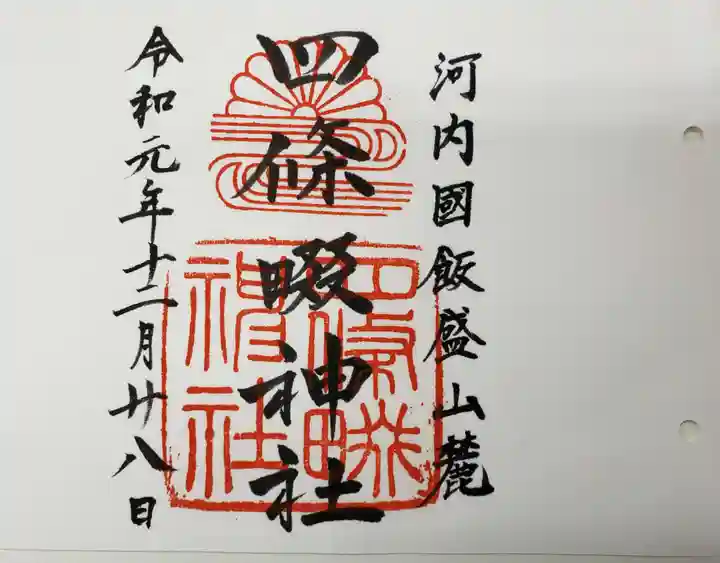 河内國飯盛山麓
四條畷神社
令和元年十二月廿八日
四條畷
神社